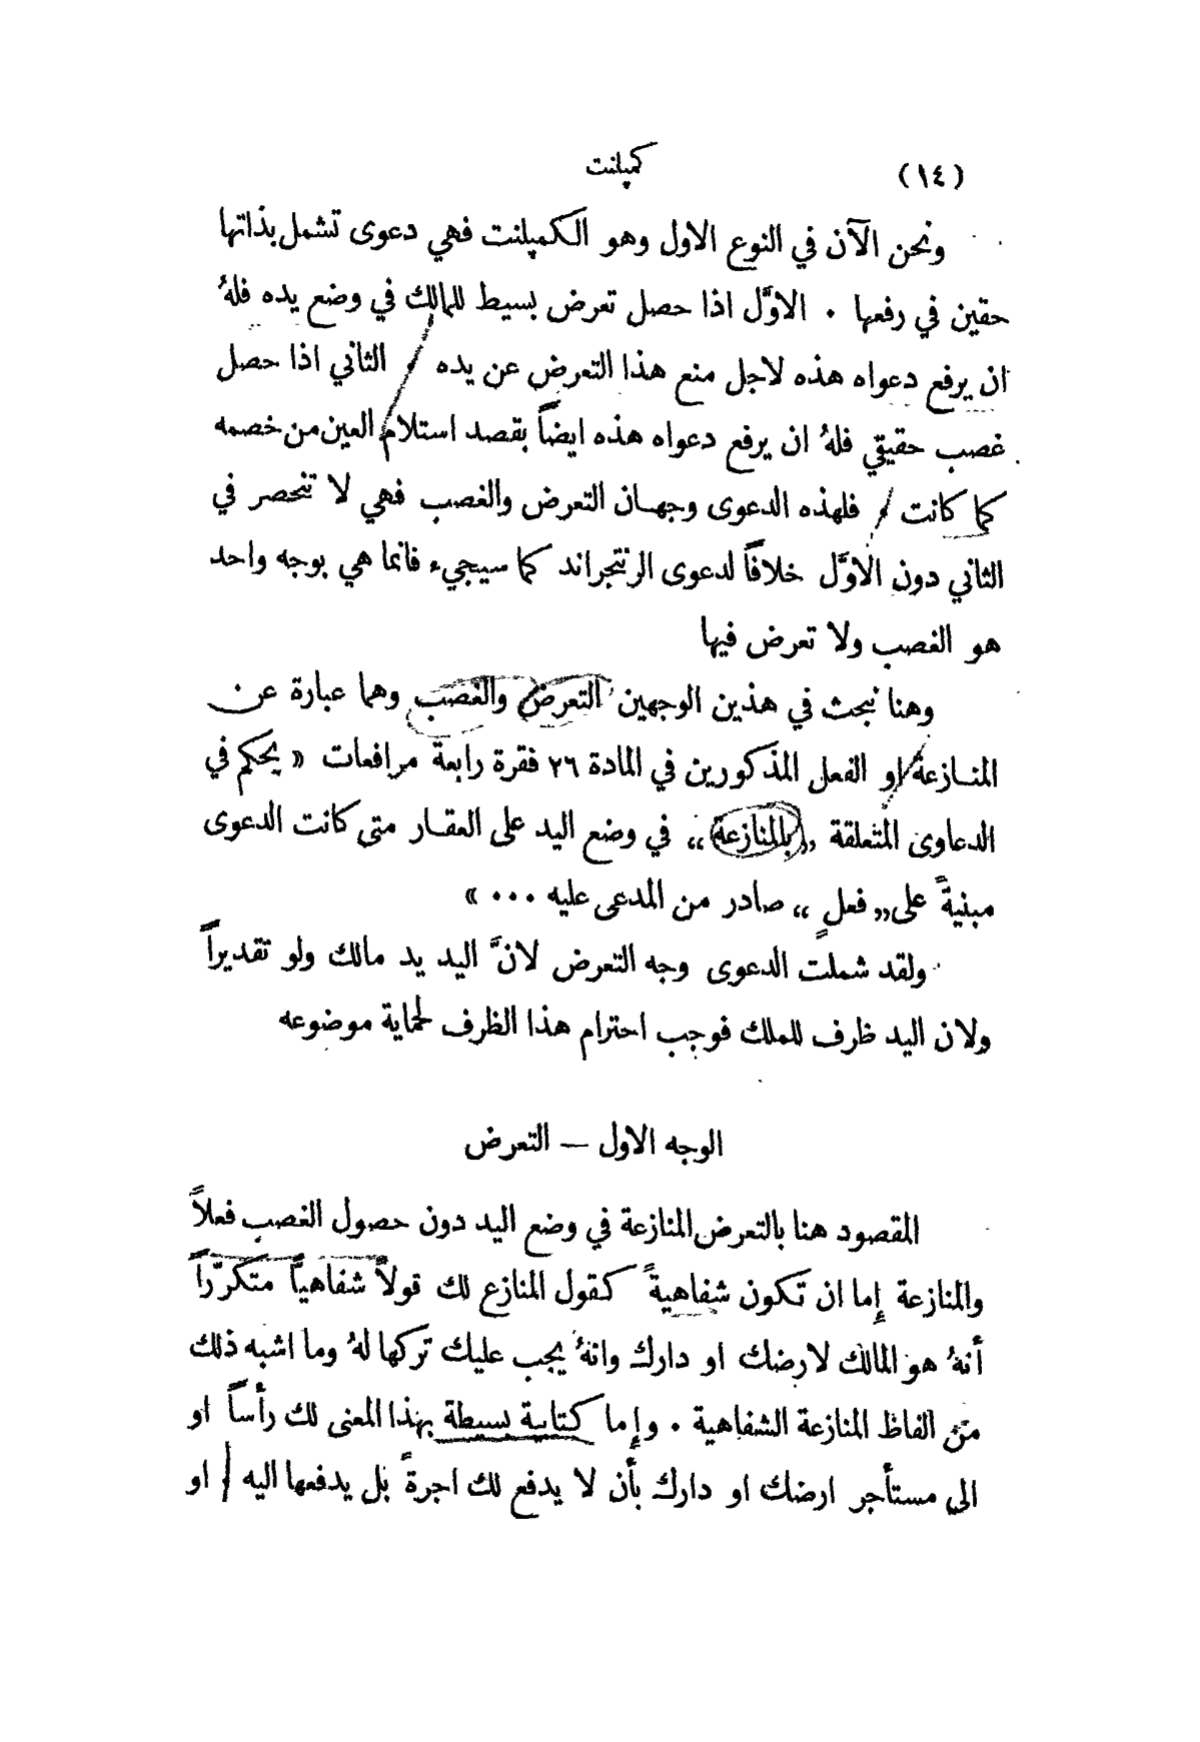 (١٤) كمپلنت
ونحن الآن في النوع الاول وهو الكمپلنت فهي دعوى تشمل بذاتها
حقين في رفعها . الاوَّل اذا حصل تعرض بسيط للمالك في وضع يده فلهُ
ان يرفع دعواه هذه لاجل منع هذا التعرض عن يده . الثاني اذا حصل
غصب حقيقي فلهُ ان يرفع دعواه هذه ايضاً بقصد استلام العين من خصمه
كما كانت . فلهذه الدعوى وجهان التعرض والغصب فهي لا تنحصر في
الثاني دون الاوَّل خلافاً لدعوى الرنتجراند كما سيجيء فانما هي بوجه واحد
هو الغصب ولا تعرض فيها
وهنا نبحث في هذين الوجهين التعرض والغصب وهما عبارة عن
المنازعة او الفعل المذكورين في المادة ٢٦ فقرة رابعة مرافعات « يحكم في
الدعاوى المتعلقة „بالمنازعة“ في وضع اليد على العقار متى كانت الدعوى
مبنيةً على „فعلٍ“ صادر من المدعى عليه ... »
ولقد شملت الدعوى وجه التعرض لانَّ اليد يد مالك ولو تقديراً
ولان اليد ظرف للملك فوجب احترام هذا الظرف لحماية موضوعه
الوجه الاول — التعرض
المقصود هنا بالتعرض المنازعة في وضع اليد دون حصول الغصب فعلاً
والمنازعة إما ان تكون شفاهيةً كقول المنازع لك قولاً شفاهياً متكرّراً
أنهُ هو المالك لارضك او دارك وانهُ يجب عليك تركها لهُ وما اشبه ذلك
من الفاظ المنازعة الشفاهية . وإما كتابية بسيطة بهذا المعنى لك رأساً او
الى مستأجر ارضك او دارك بأن لا يدفع لك اجرةً بل يدفعها اليه . او